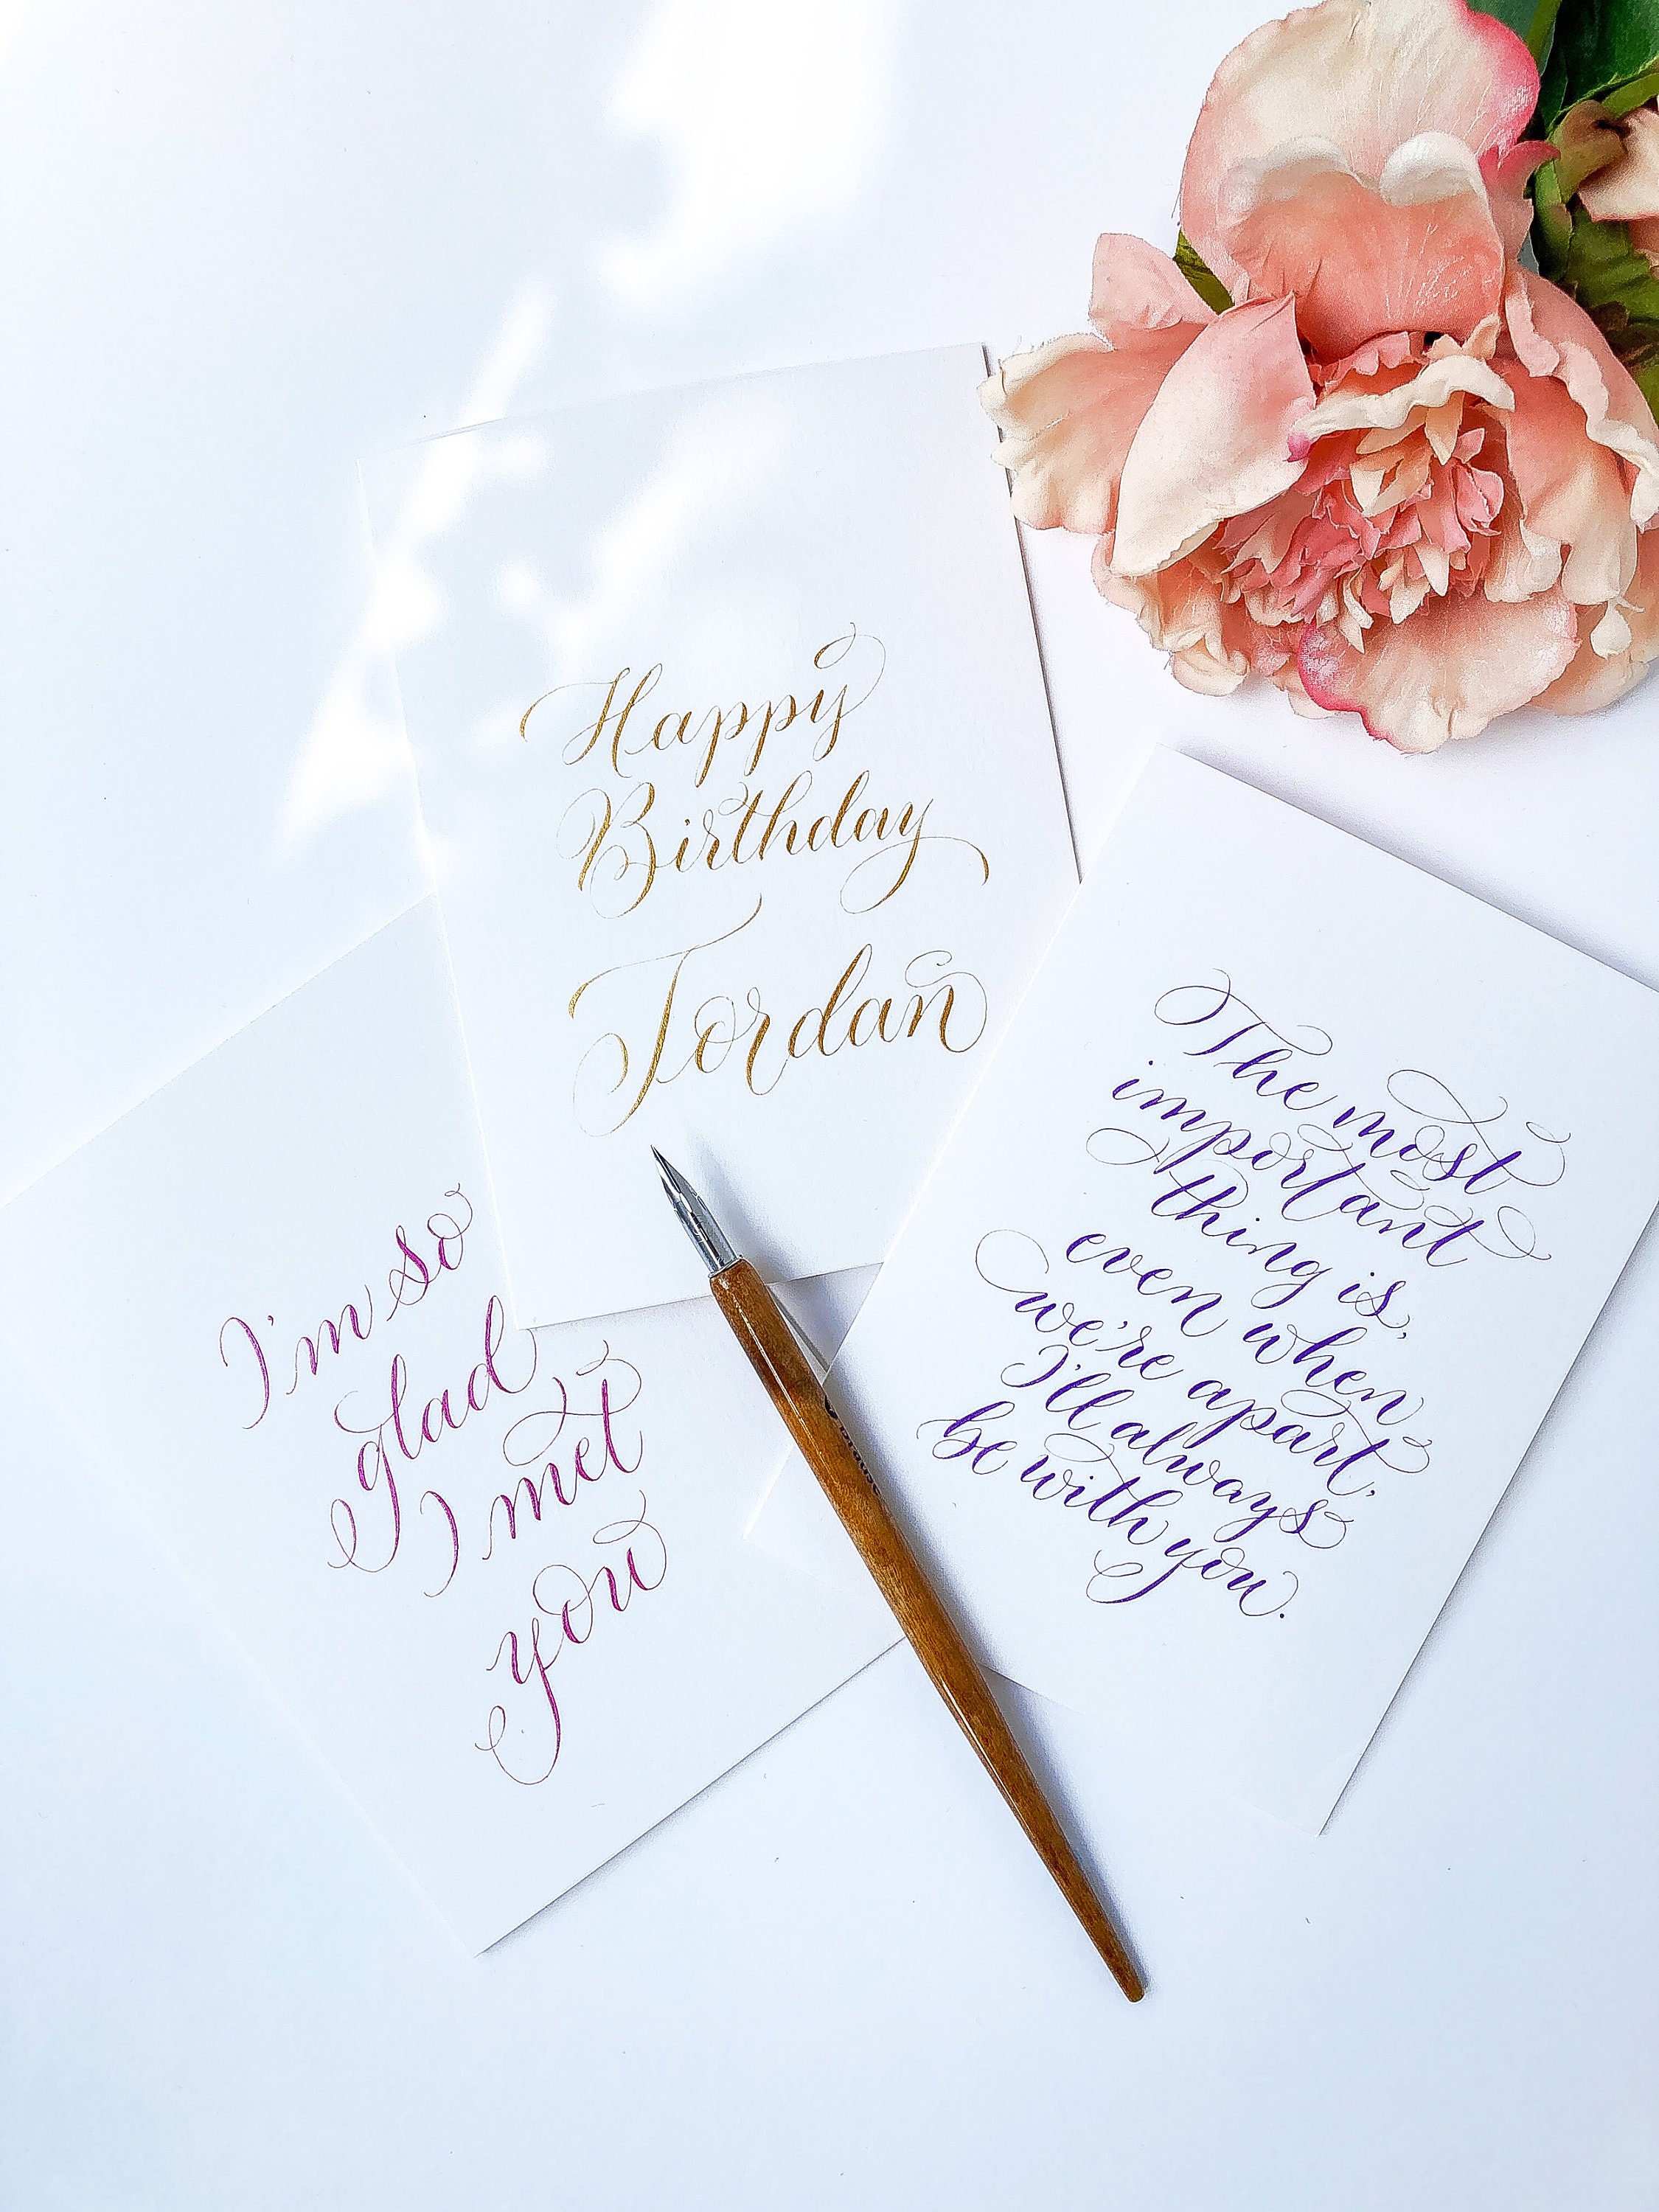 Happy
Birthday
Jordan
I'm so
glad
I met
you
The most
important
thing is,
even when
we're apart,
I'll always
be with you.